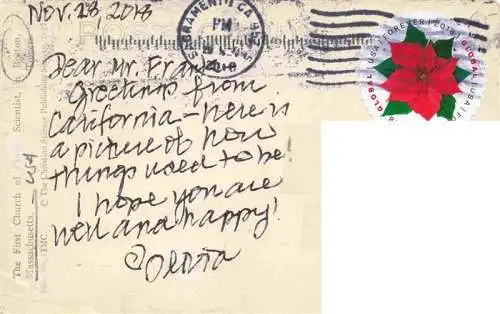 Nov. 28, 2018
SACRAMENTO CA 957
PM
Dear Mr. Frank
Greetings from
California - here is
a picture of how
things used to be!
I hope you are
well and happy!
Olivia
GLOBAL USA FOREVER 2018
GLOBAL USA
The First Church of Scientist, Boston,
Massachusetts. - USA
© The Christian Science Publishing